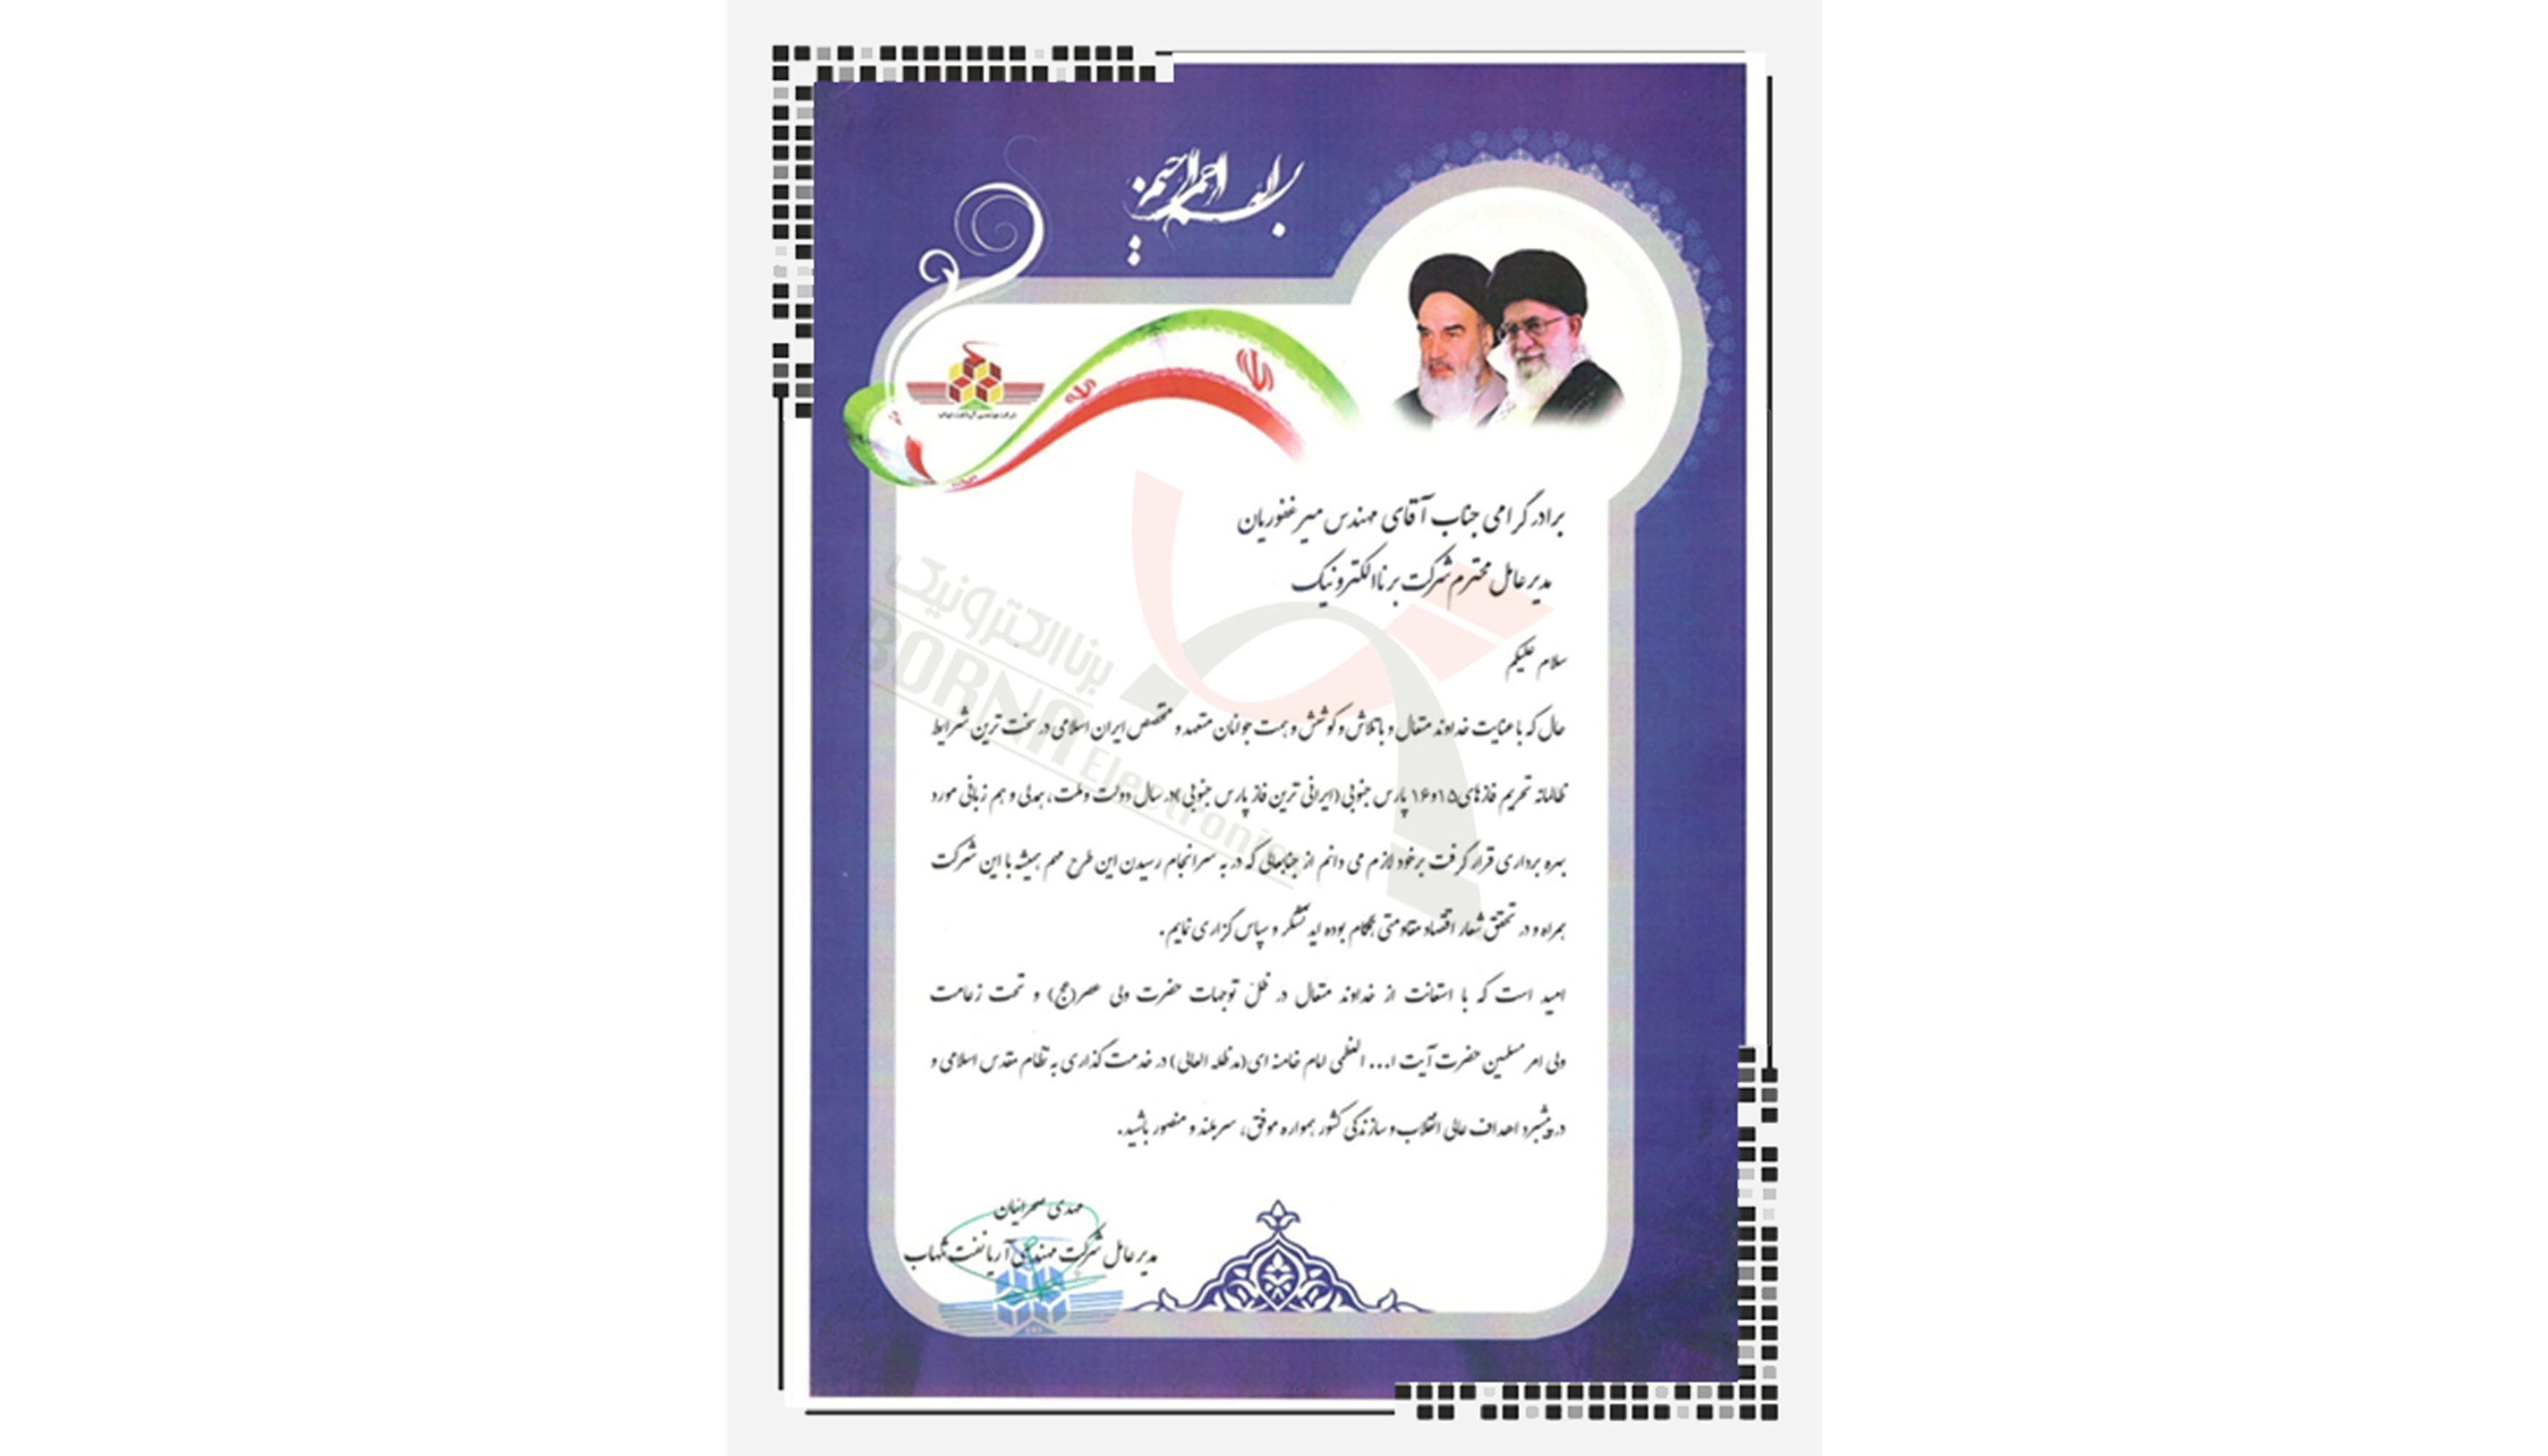 بسم الله الرحمن الرحیم
شرکت مهندسی آریا نفت شهاب
برادر گرامی جناب آقای مهندس میرغفوریان
مدیر عامل محترم شرکت برنا الکترونیک
سلام علیکم
حال که با عنایت خداوند متعال و با تلاش و کوشش و همت جوانان متعهد و متخصص ایران اسلامی در سخت ترین شرایط
ظالمانه تحریم فازهای ۱۵و۱۶ پارس جنوبی (ایرانی ترین فاز پارس جنوبی) در سال دولت و ملت، همدلی و هم زبانی مورد
بهره برداری قرار گرفت برخود لازم می دانم از جنابعالی که در به سرانجام رسیدن این طرح مهم همیشه با این شرکت
همراه و در تحقق شعار اقتصاد مقاومتی همگام بوده اید تشکر و سپاس گزاری نمایم.
امید است که با استعانت از خداوند متعال در ظل توجهات حضرت ولی عصر(عج) و تحت زعامت
ولی امر مسلمین حضرت آیت ا... العظمی امام خامنه ای(مدظله العالی) در خدمت گذاری به نظام مقدس اسلامی و
در پیشبرد اهداف عالی انقلاب و سازندگی کشور همواره موفق، سربلند و منصور باشید.
مهدی صحرائیان
مدیر عامل شرکت مهندسی آریا نفت شهاب
برنا الکترونیک
BORNA Electronics